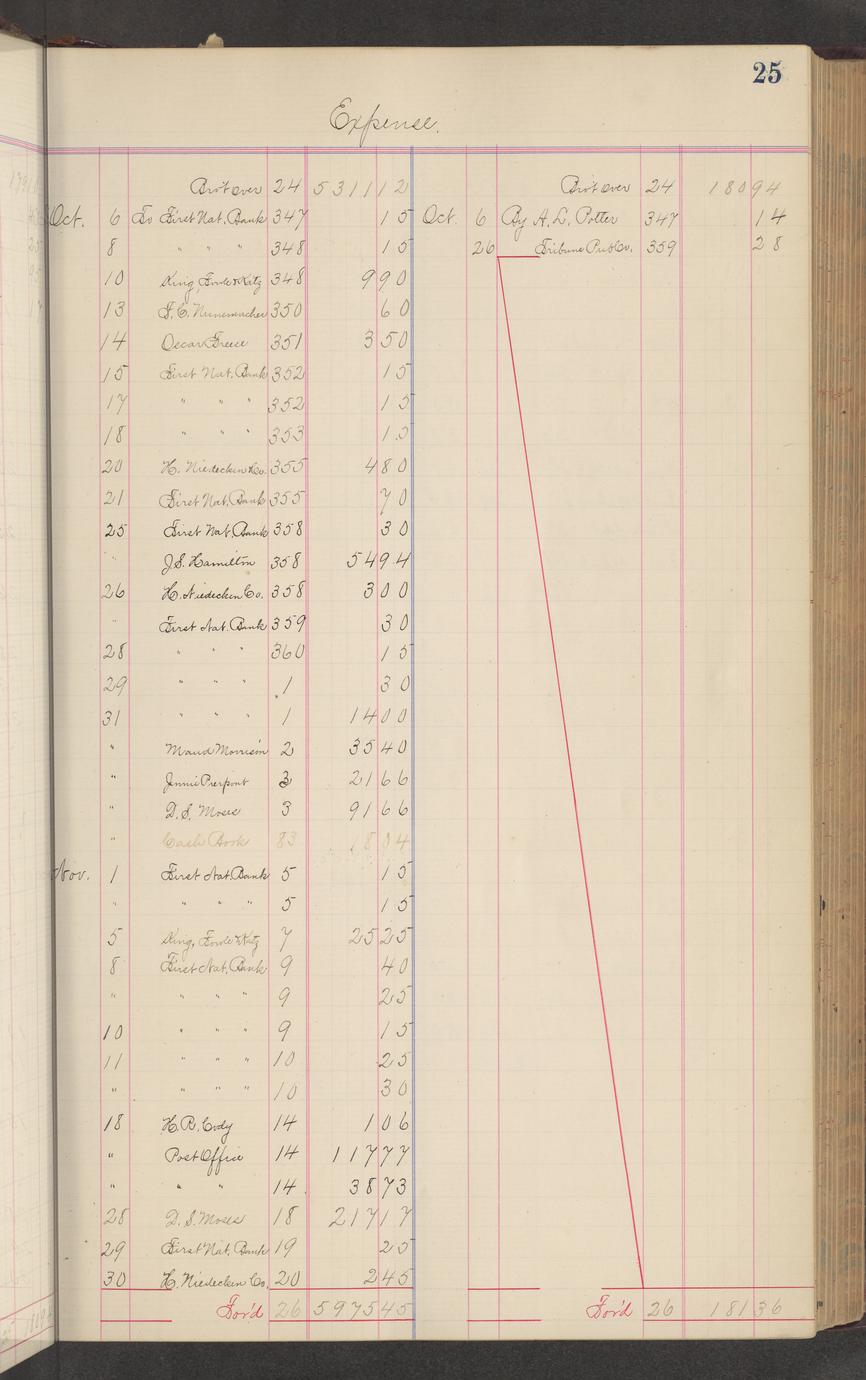 25
Expense.
Bro't over 24 5311 12 Bro't over 24 180 94
Oct. 6 To First Nat. Bank 347 15 Oct. 6 By A. L. Potter 347 14
8 " " " 348 15 26 Tribune Pub. Co. 359 28
10 King, Fowle & Katz 348 9 90
13 F. C. Nunemacher 350 60
14 Oscar Freese 351 3 50
15 First Nat. Bank 352 15
17 " " " 352 15
18 " " " 353 15
20 H. Niedecken Co. 355 4 80
21 First Nat. Bank 355 70
25 First Nat. Bank 358 30
" J. S. Hamilton 358 54 94
26 H. Niedecken Co. 358 3 00
" First Nat. Bank 359 30
28 " " " 360 15
29 " " " 1 30
31 " " " 1 14 00
" Maud Morrison 2 35 40
" Jennie Pierpont 3 21 66
" D. S. Moses 3 91 66
" Cash Book 83 18 04
Nov. 1 First Nat. Bank 5 15
" " " " 5 15
5 King, Fowle & Katz 7 25 25
8 First Nat. Bank 9 40
" " " " 9 25
10 " " " 9 15
11 " " " 10 25
" " " " 10 30
18 H. B. Cody 14 1 06
" Post Office 14 117 77
" " " 14 38 73
28 D. S. Moses 18 217 17
29 First Nat. Bank 19 25
30 H. Niedecken Co. 20 2 45
For'd 26 5975 45 For'd 26 181 36